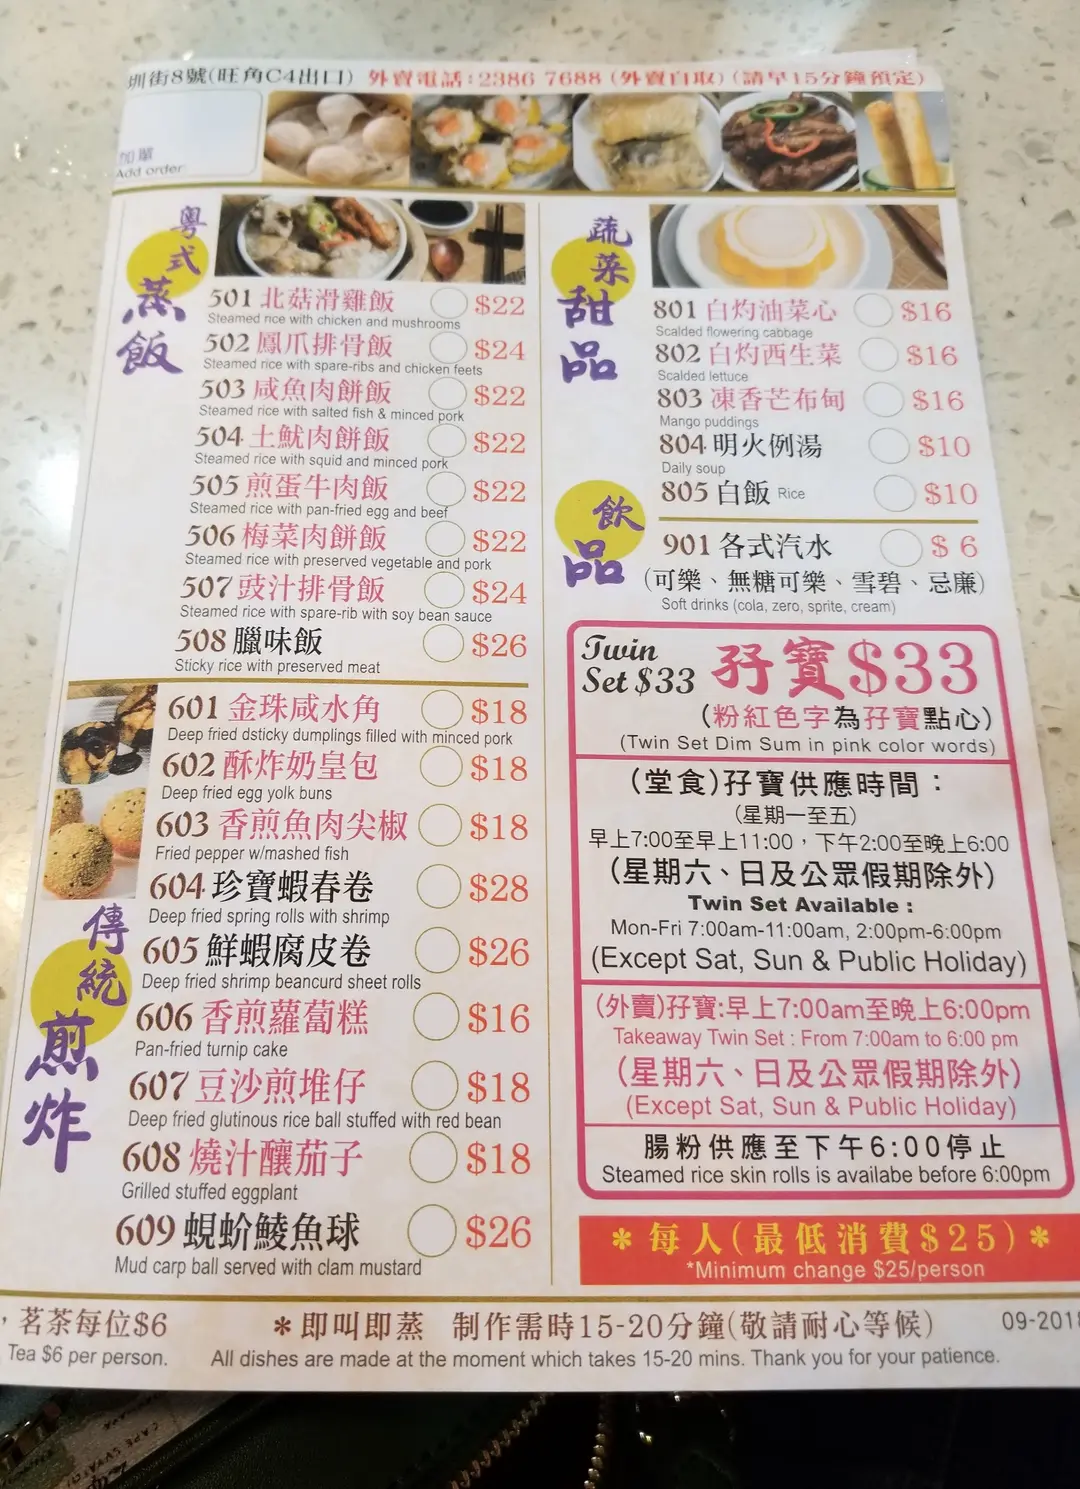 圳街8號(旺角C4出口) 外賣電話:2386 7688 (外賣自取) (請早15分鐘預定)
加單
Add order
粵式蒸飯
501 北菇滑雞飯 $22
Steamed rice with chicken and mushrooms
502 鳳爪排骨飯 $24
Steamed rice with spare-ribs and chicken feets
503 咸魚肉餅飯 $22
Steamed rice with salted fish & minced pork
504 土魷肉餅飯 $22
Steamed rice with squid and minced pork
505 煎蛋牛肉飯 $22
Steamed rice with pan-fried egg and beef
506 梅菜肉餅飯 $22
Steamed rice with preserved vegetable and pork
507 豉汁排骨飯 $24
Steamed rice with spare-rib with soy bean sauce
508 臘味飯 $26
Sticky rice with preserved meat
傳統煎炸
601 金珠咸水角 $18
Deep fried dsticky dumplings filled with minced pork
602 酥炸奶皇包 $18
Deep fried egg yolk buns
603 香煎魚肉尖椒 $18
Fried pepper w/mashed fish
604 珍寶蝦春卷 $28
Deep fried spring rolls with shrimp
605 鮮蝦腐皮卷 $26
Deep fried shrimp beancurd sheet rolls
606 香煎蘿蔔糕 $16
Pan-fried turnip cake
607 豆沙煎堆仔 $18
Deep fried glutinous rice ball stuffed with red bean
608 燒汁釀茄子 $18
Grilled stuffed eggplant
609 蜆蚧鯪魚球 $26
Mud carp ball served with clam mustard
蔬菜甜品
801 白灼油菜心 $16
Scalded flowering cabbage
802 白灼西生菜 $16
Scalded lettuce
803 凍香芒布甸 $16
Mango puddings
804 明火例湯 $10
Daily soup
805 白飯 Rice $10
飲品
901 各式汽水 $ 6
(可樂、無糖可樂、雪碧、忌廉)
Soft drinks (cola, zero, sprite, cream)
Twin Set $33 孖寶$33
(粉紅色字為孖寶點心)
(Twin Set Dim Sum in pink color words)
(堂食)孖寶供應時間：
(星期一至五)
早上7:00至早上11:00，下午2:00至晚上6:00
(星期六、日及公眾假期除外)
Twin Set Available :
Mon-Fri 7:00am-11:00am, 2:00pm-6:00pm
(Except Sat, Sun & Public Holiday)
(外賣)孖寶:早上7:00am至晚上6:00pm
Takeaway Twin Set : From 7:00am to 6:00 pm
(星期六、日及公眾假期除外)
(Except Sat, Sun & Public Holiday)
腸粉供應至下午6:00停止
Steamed rice skin rolls is availabe before 6:00pm
＊每人(最低消費$25)＊
*Minimum change $25/person
，茗茶每位$6 ＊即叫即蒸 制作需時15-20分鐘(敬請耐心等候) 09-2018
Tea $6 per person. All dishes are made at the moment which takes 15-20 mins. Thank you for your patience.